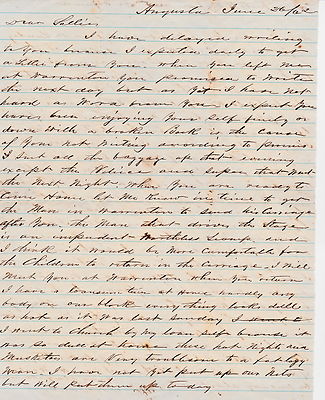 Augusta June 26/62
Dear Sallie
I have delayed writing
to You because I expected daily to get
a Letter from You, when You left me
at Warrenton You promised to Write
the next day but as Yet I have not
heard a Word from You. I expect You
have been enjoying Your Self finely or
down With a broken Back is the cause
of Your not Writing according to promise.
I sent all the baggage up that evening
except the Valice and Super that Went
the Next Night, When You are ready to
Come Home let Me Know in time to get
the Man in Warrenton to Send his Carriage
after You, the Man that drives the Stage
is an impudent Worthless Scamp and
I think it would be More Comfortable for
the Children to return in the Carriage, I will
Meet You at Warrenton When You return
I have a time at Home hardly any
body on our block every thing looks dull
as hot as it Was last Sunday I
I Went to Church by my lone self because it
was So dull at home these hot Nights and
Musketoes are Very troublesome to a fat
Man, I have not Yet put up our Nets
but Will put them up to day